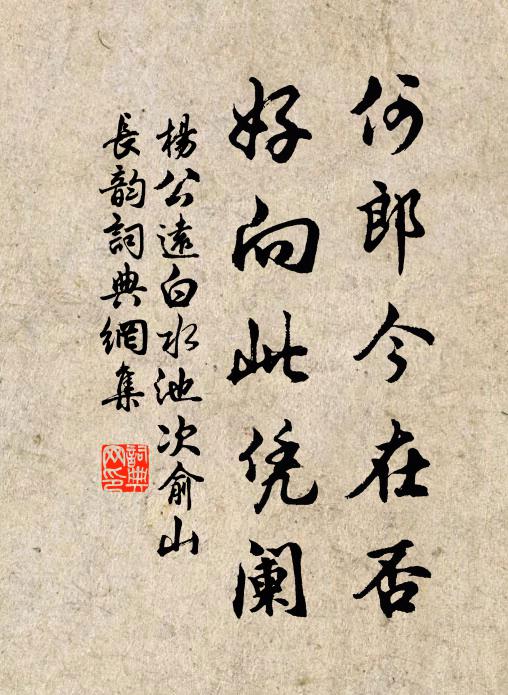 何郎今在否
好向此凭阑
楊公遠白水池次俞山
長韵詞典網集
詞典網印